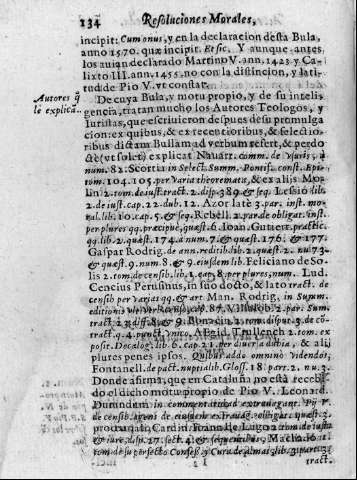 134 Resoluciones Morales,
incipit: Cum onus, y en la declaracion desta Bula,
anno 1570. quæ incipit. Et sic. Y aunque antes
los auian declarado Martino V. ann. 1423 y Ca-
lixto III. ann. 1455. no con la distincion, y lati-
tud de Pio V. vt constat.
Autores q̃
le explicã.
De cuya Bula, y motu proprio, y de su inteli-
gencia, tratan mucho los Autores Teologos, y
Iuristas, que escriuieron despues desu promulga
cion: ex quibus, & ex recentioribus, & selectio-
ribus dictam Bullam ad verbum refert, & perdo
ctè (vt solet) explicat Nauarr. comm. de Vsuris, à
num. 82. Scortia in Select. Summ. Pontif. const. Epi-
tom. 104. 105. per varia theoremata, & ex alijs Mo-
lin 2. tom. de iust. tract. 2. disp. 389 & seq. Lessio lib.
2. de iust. cap. 22. dub. 12. Azor late 3. par. inst. mo-
ral. lib. 10. cap. 5. & seq. Rebell. 2. par. de obligat. inst.
per plures qq. præcipuè, quæst. 6. Ioan. Gutierr. practic.
qq. lib. 2. quæst. 174. à num. 7. & quæst. 176. & 177.
Gaspar Rodrig. de ann. reditib. lib. 2. quæst. 2. nu. 73.
& quæst. 9. num. 8. & 9. eiusdem lib. Feliciano de So-
lis 2. tom. de censib. lib. 1. cap. 8. per plures, num. Lud.
Cencius Perusinus, in suo docto, & lato tract. de
censib per varias qq. & art Man. Rodrig. in Summ.
2. par. Sum.
tract. 3. de cõ-
tract. q. 4. punct. vnico, Abb. Trullench 2. tom. ex
posit. Decalog. lib. 6. cap. 21. per diuersa dubia, & alij
plures penes ipsos. Quibus addo omnino videndos,
Fontanell. de pact. nuptialib. Gloss. 18. part. 2. nu. 3.
Donde afirma, que en Cataluña no està recebi-
do el dicho motu proprio de Pio V. Leonard.
Duardum in comment. itidad extrauagant. Pij V.
de censib. agens de eiusdem
Cardin. Franc. de Lugo 2. tom. de iusta
& iure, disp. 27. sect. 4. & sequentibus, Machad. 1.
tom. de su perfecto Confess. y Cura de almas, lib. 3. part. 3.
tract.